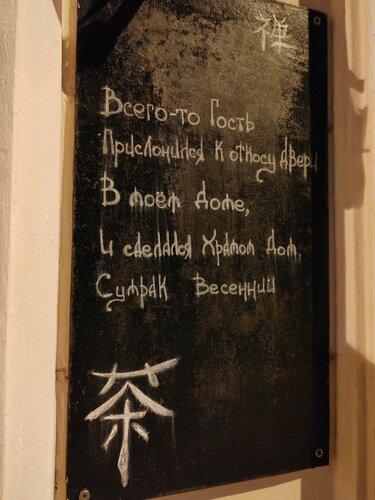 禅
Всего-то Гость
Прислонился к откосу двери
В моём доме,
И сделался Храмом Дом.
Сумрак Весенний
茶